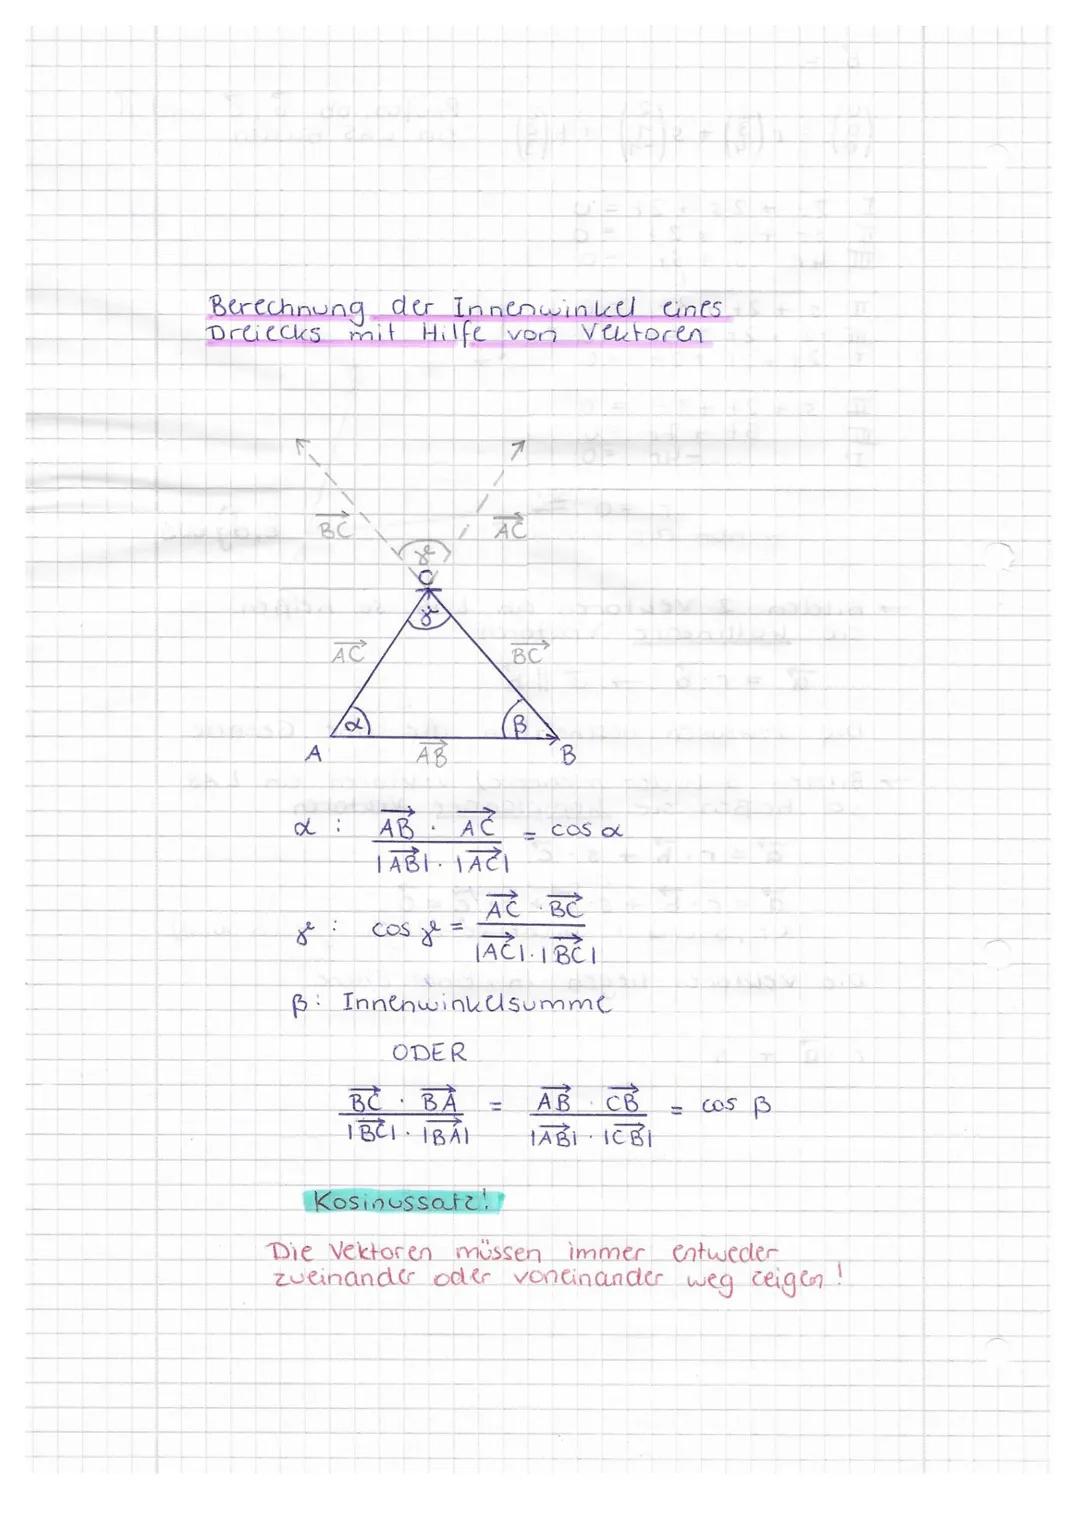 Berechnung der Innenwinkel eines
Dreiecks mit Hilfe von Vektoren
BC→ AC→
γ
C
γ
AC→ BC→
α β
A AB→ B
α : (AB→ · AC→) / (|AB→| · |AC→|) = cos α
γ : cos γ = (AC→ · BC→) / (|AC→| · |BC→|)
β : Innenwinkelsumme
ODER
(BC→ · BA→) / (|BC→| · |BA→|) = (AB→ · CB→) / (|AB→| · |CB→|) = cos β
Kosinussatz!
Die Vektoren müssen immer entweder
zueinander oder voneinander weg zeigen!